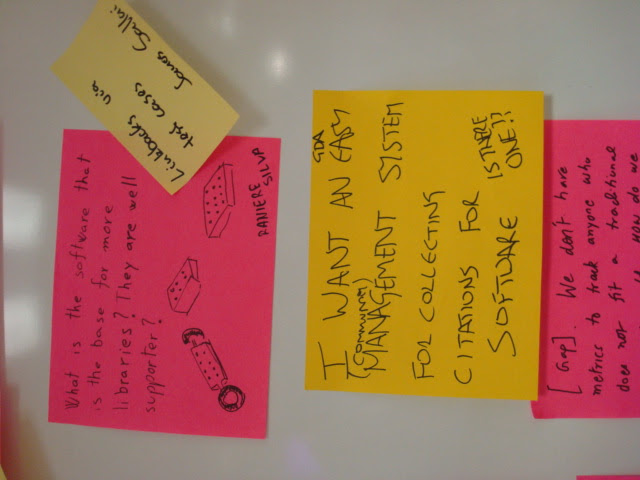 What is the software that
is the base for more
libraries? They are well
supporter?
RANIERE
SILVA
Linkbacks via
test cases
James Sallai
GDA
I WANT AN EASY
(COMMUNITY)
MANAGEMENT SYSTEM
FOR COLLECTING
CITATIONS FOR
SOFTWARE
IS THERE
ONE??
[Gap]. We don't have
metrics to track anyone who
does not fit a traditional
How do we